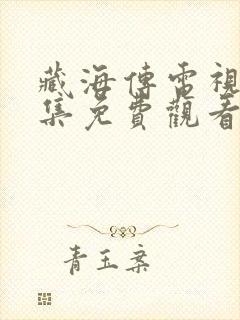 藏海傳電視
集免費觀看
青玉案